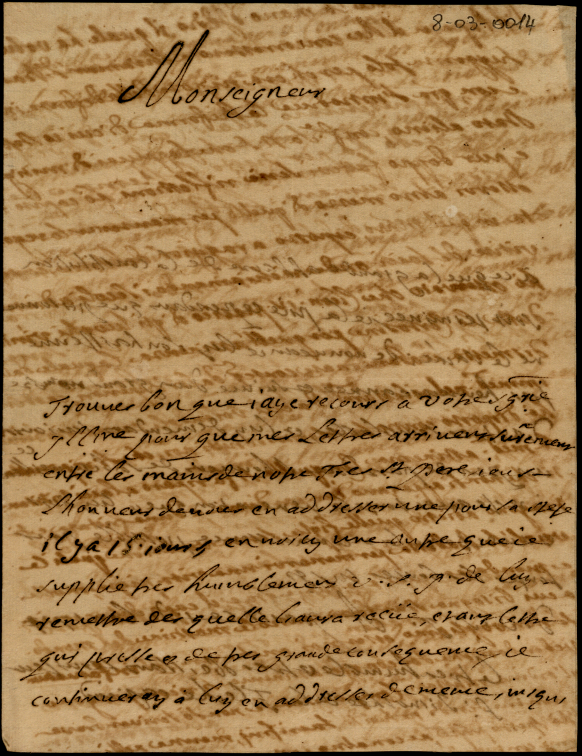 8-03-0014
Monseigneur
Trouves bon que iaye recours a votre sgrie
Illme pour que mes Lettres arrivent surement
entre les mains de notre Tres St pere ieus
l'honneur de vous en addresser une pour sa Stete
il y a 15 iours en voicy une autre que ie
supplie tres humblement v. s. I. de luy
remettre des quelle l'aura recüe, c'est une lettre
qui presse et de tres grande consequence, ie
continueray à luy en addresser de meme, iusqu